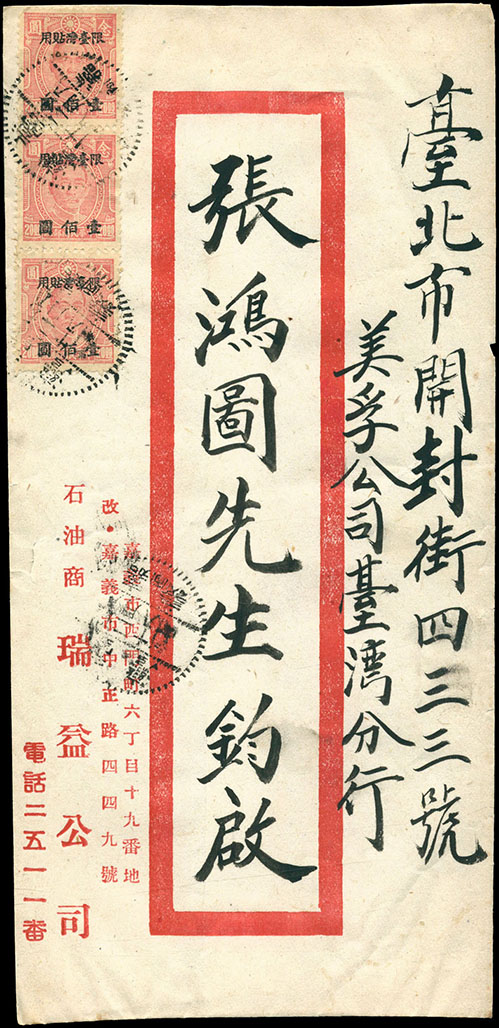 臺北市開封街四三三號
美孚公司臺灣分行
張鴻圖先生鈞啟
嘉義市西門町六丁目十九番地
改・嘉義市中正路四四九號
石油商 瑞益公司
電話二五一一番
限臺灣貼用
壹佰圓
限臺灣貼用
壹佰圓
限臺灣貼用
壹佰圓